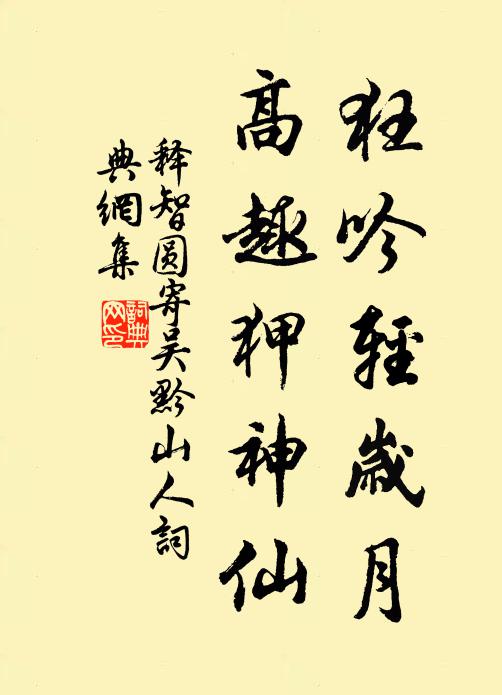 狂吟輕歲月
高趣狎神仙
释智圆寄吴黔山人詞
典網集
詞典
网印